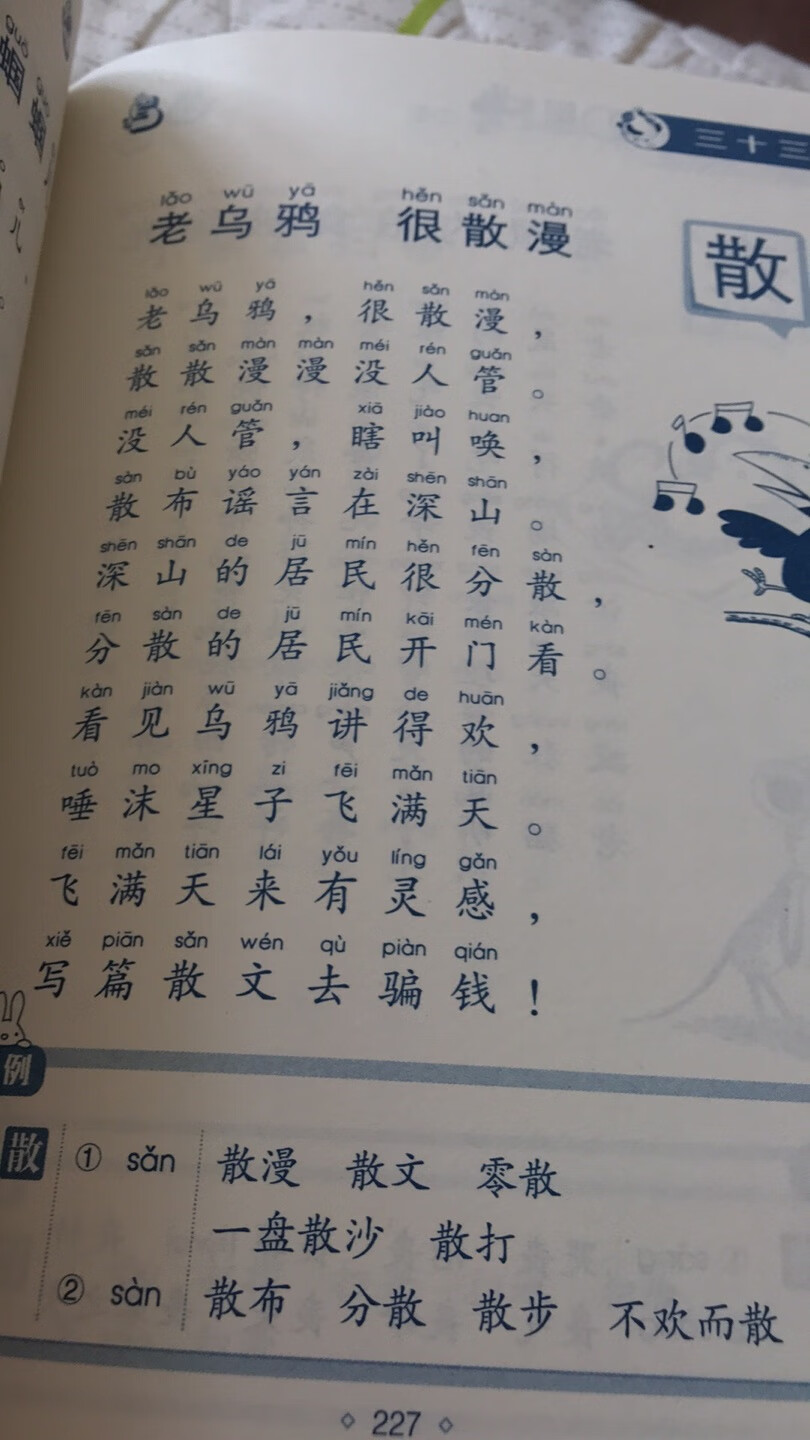 三十三
散
lǎo wū yā hěn sǎn màn
老乌鸦 很散漫
lǎo wū yā hěn sǎn màn
老乌鸦，很散漫，
sǎn sǎn màn màn méi rén guǎn
散散漫漫没人管。
méi rén guǎn xiā jiào huan
没人管，瞎叫唤，
sàn bù yáo yán zài shēn shān
散布谣言在深山。
shēn shān de jū mín hěn fēn sàn
深山的居民很分散，
fēn sàn de jū mín kāi mén kàn
分散的居民开门看。
kàn jiàn wū yā jiǎng de huān
看见乌鸦讲得欢，
tuò mo xīng zi fēi mǎn tiān
唾沫星子飞满天。
fēi mǎn tiān lái yǒu líng gǎn
飞满天来有灵感，
xiě piān sǎn wén qù piàn qián
写篇散文去骗钱！
例
散 ① sǎn 散漫 散文 零散
一盘散沙 散打
② sàn 散布 分散 散步 不欢而散
227